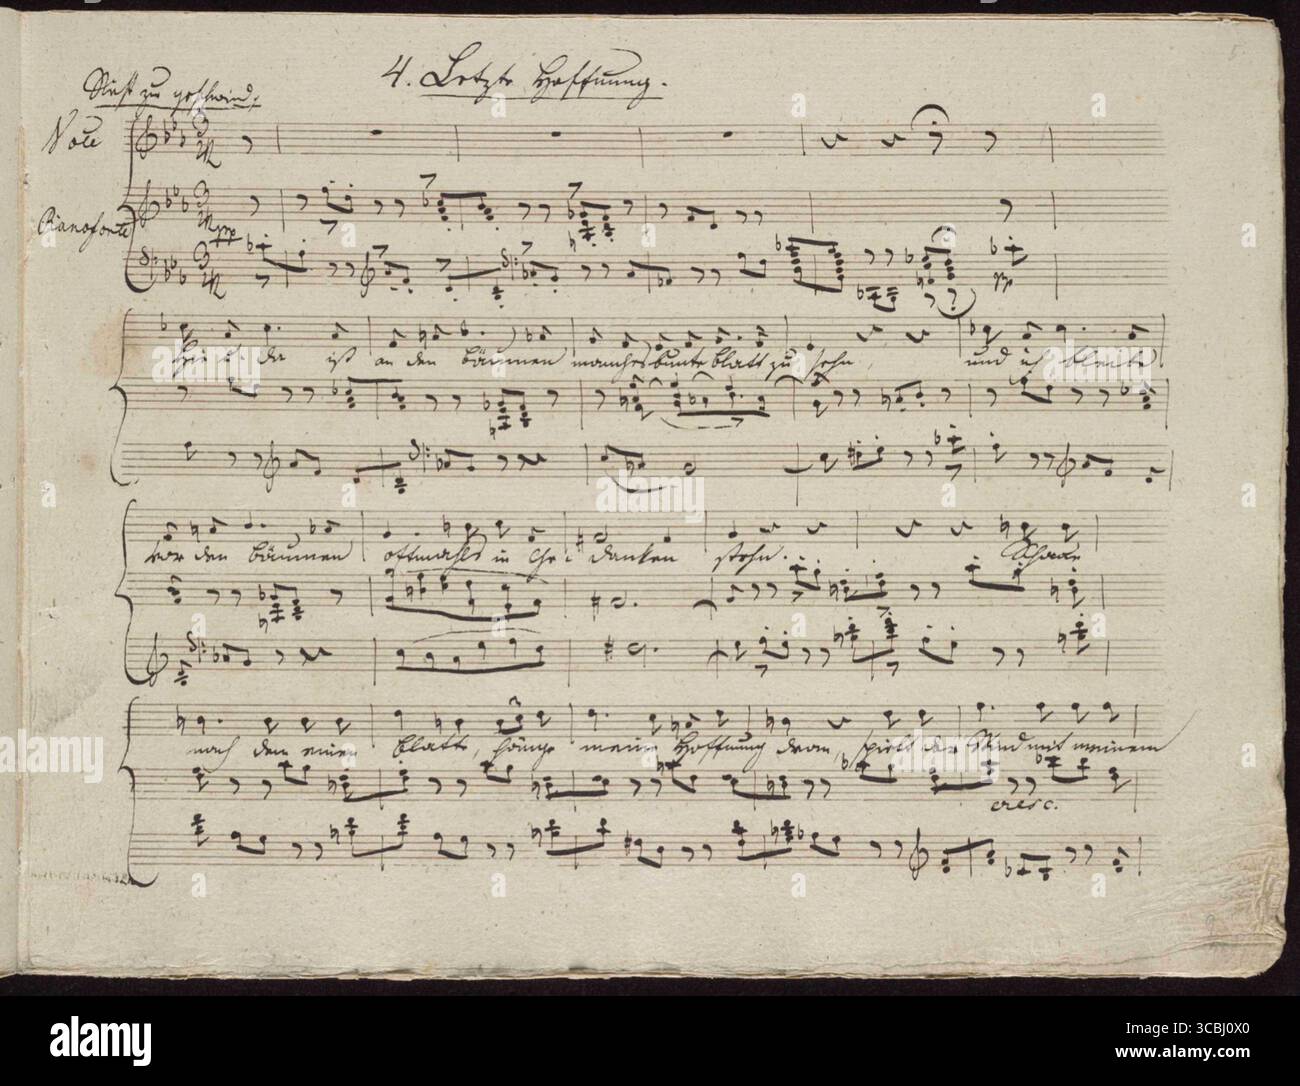 4. Letzte Hoffnung.
Nicht zu geschwind.
Voce
Pianoforte
pp
pp
Hie u. da ist an den Bäumen manches bunte Blatt zu sehn, und ich bleibe
vor den Bäumen oftmahls in Gedanken stehn. Schaue
nach dem einen Blatte, hänge meine Hoffnung dran, spielt der Wind mit meinem
cresc.
alamy
Image ID: 3CBJ0X0
www.alamy.com